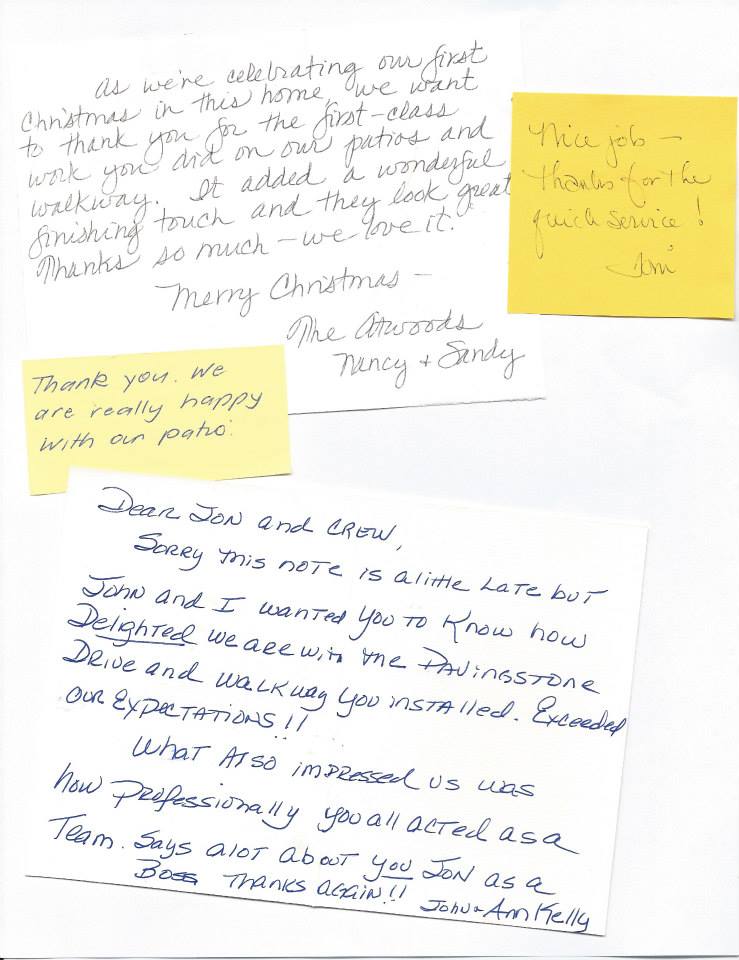 As we're celebrating our first
Christmas in this home, we want
to thank you for the first-class
work you did on our patios and
walkway. It added a wonderful
finishing touch and they look great.
Thanks so much - we love it.
Merry Christmas -
The Atwoods
Nancy + Sandy
Nice job -
Thanks for the
quick service!
Thank you. We
are really happy
with our patio.
Dear Jon and Crew,
Sorry this note is a little late but
John and I wanted you to know how
Delighted we are with the Pavingstone
Drive and walkway you installed. Exceeded
our expectations!!
What also impressed us was
how professionally you all acted as a
Team. Says alot about you Jon as a
Boss Thanks again!! John + Ann Kelly